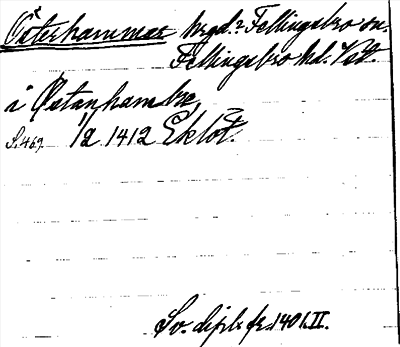 Österhammar brgd? Fellingsbro sn.
Fellingsbro hd. Vstm.
i Østanhambre
S. 469. 1/2 1412 Eklöt.
Sv. dipl. fr. 1401. II.